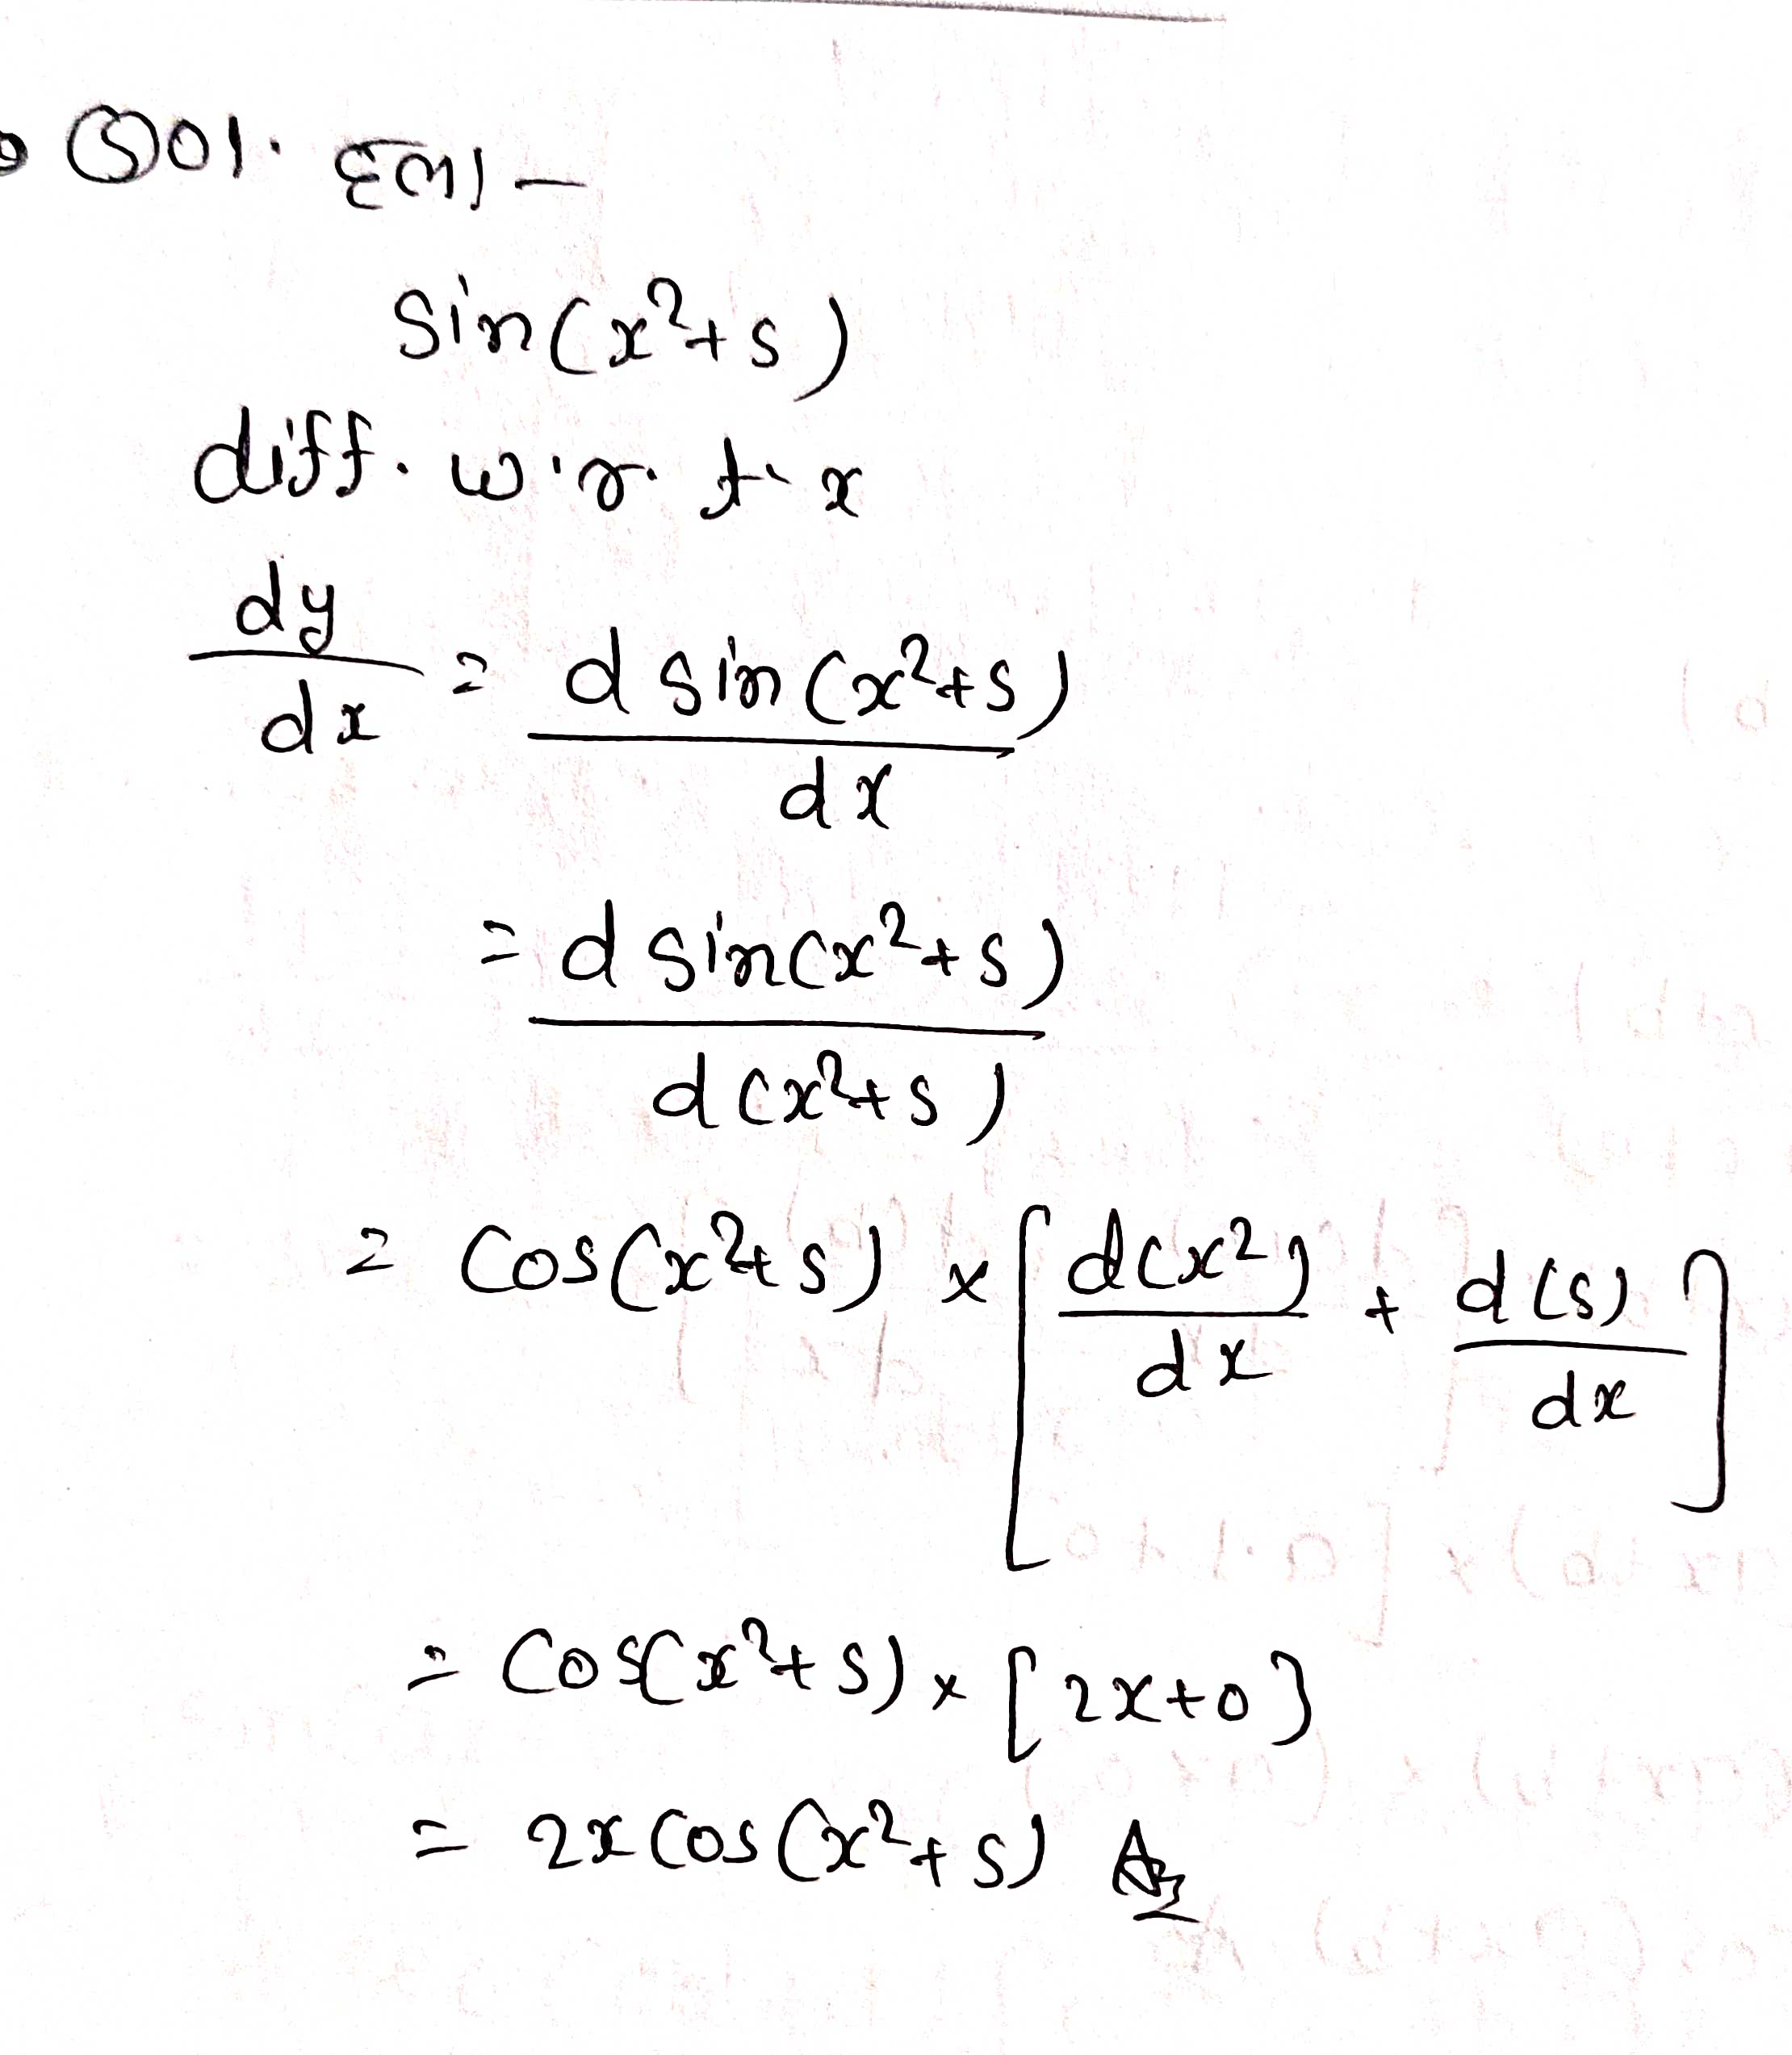 (S)01. हल।-
Sin(x²+5)
diff. w.r.t. x
dy/dx = d sin(x²+5)/dx
= d sin(x²+5)/d(x²+5)
= Cos(x²+5) × [d(x²)/dx + d(5)/dx]
= Cos(x²+5) × [2x+0]
= 2x Cos(x²+5) Ans